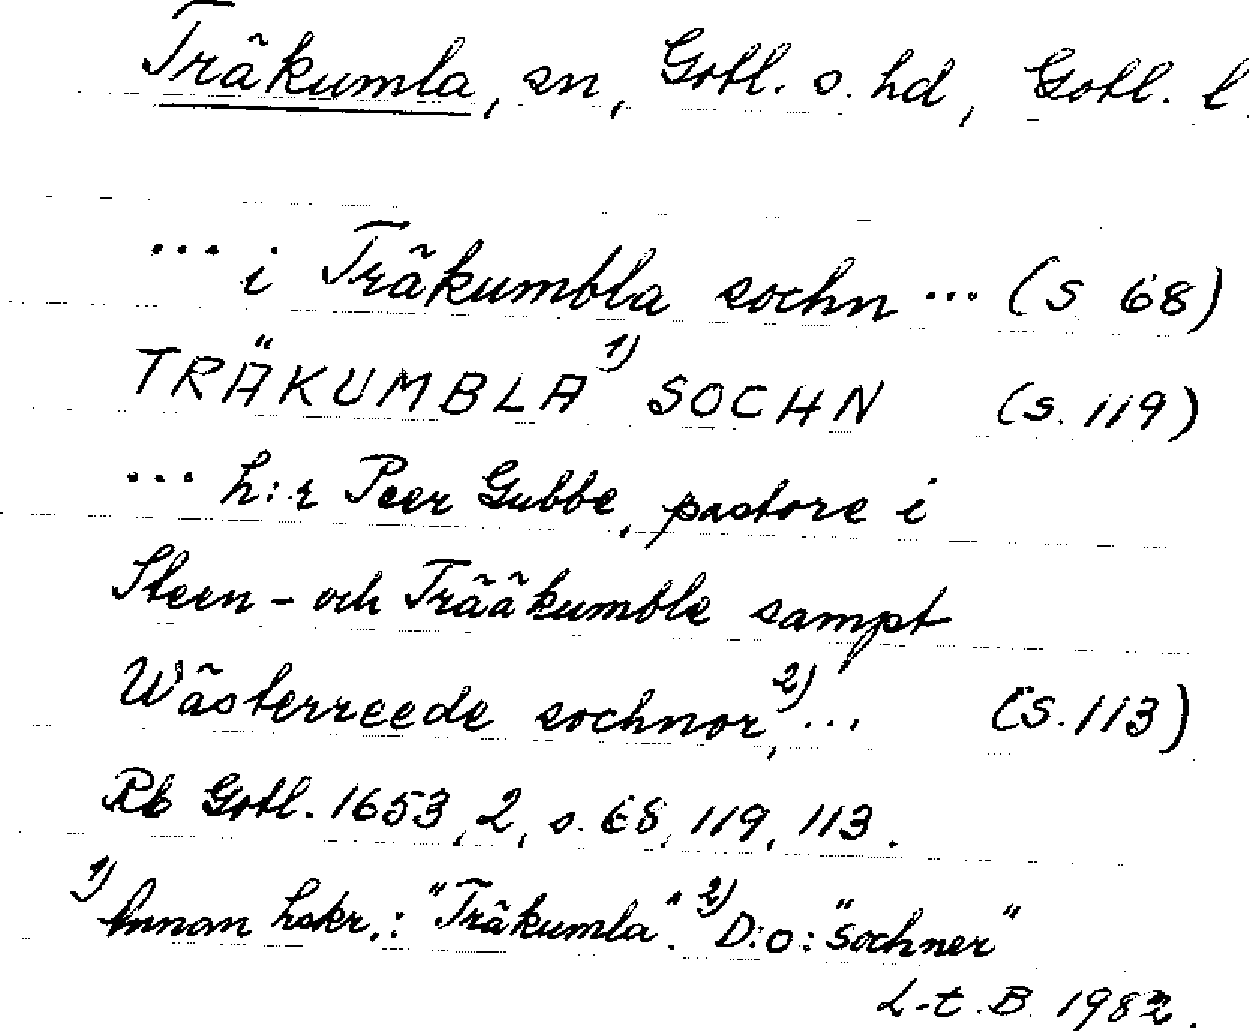 Träkumla, sn, Gotl. s. hd, Gotl. l.
... i Träkumbla sochn ... (s 68)
TRÄKUMBLA 1) SOCHN (s. 119)
... h:r Peer Gubbe, pastore i
Steen- och Trääkumble sampt
Wästerreede sochnor, 2) ... (s. 113)
Rb Gotl. 1653, 2, s. 68, 119, 113.
1) Annan hskr.: "Träkumla". 2) D:o: "Sochner"
L-t. B. 1982.